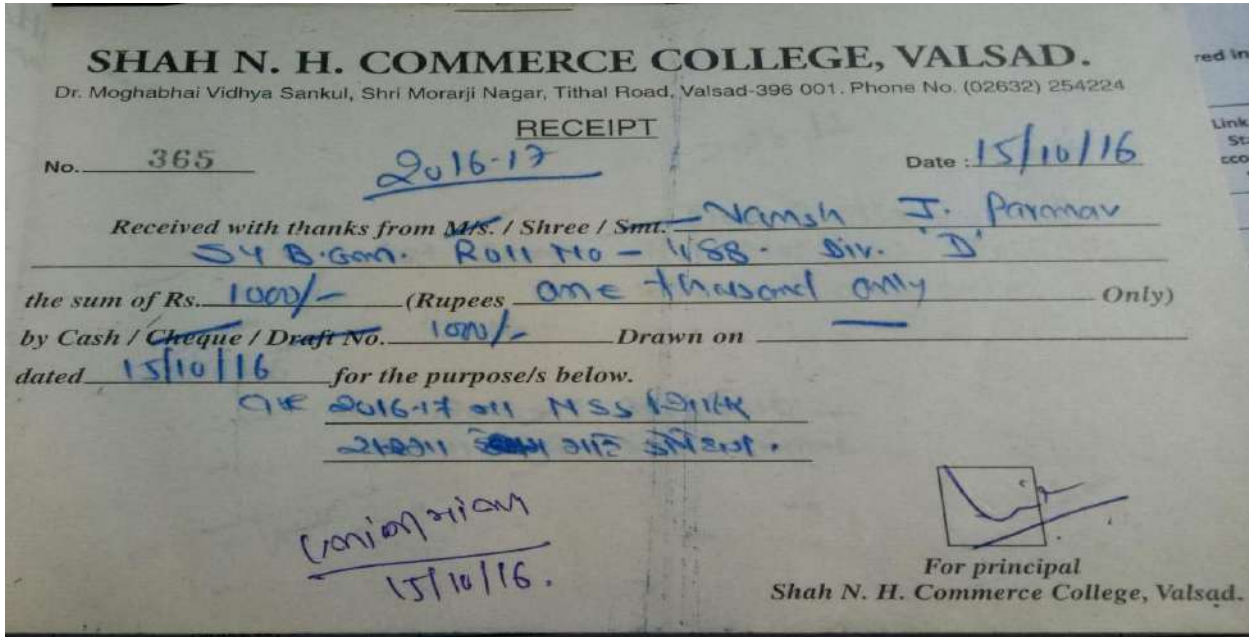 SHAH N. H. COMMERCE COLLEGE, VALSAD.
Dr. Moghabhai Vidhya Sankul, Shri Morarji Nagar, Tithal Road, Valsad-396 001. Phone No. (02632) 254224
RECEIPT
No. 365 2016-17 Date : 15/10/16
Received with thanks from M/s. / Shree / Smt. Vamsh J. Paramar
SY B.Com. Roll No - 488. Div. 'D'
the sum of Rs. 1000/- (Rupees one thusand only Only)
by Cash / Cheque / Draft No. 1000/- Drawn on
dated 15/10/16 for the purpose/s below.
2016-17 ના NSS
માટે
15/10/16.
For principal
Shah N. H. Commerce College, Valsad.
red in
Link